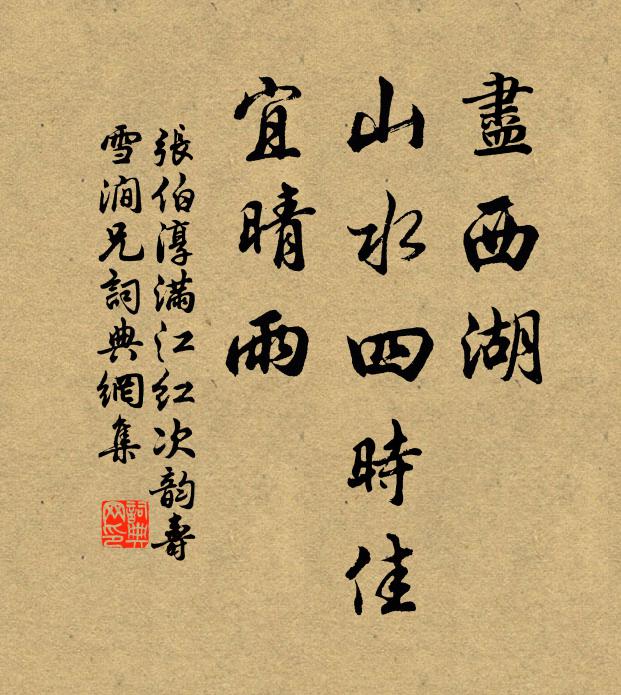 盡西湖
山水四時佳
宜晴雨
張伯淳滿江紅次韵壽
雪澗兄詞典網集
詞典
网印